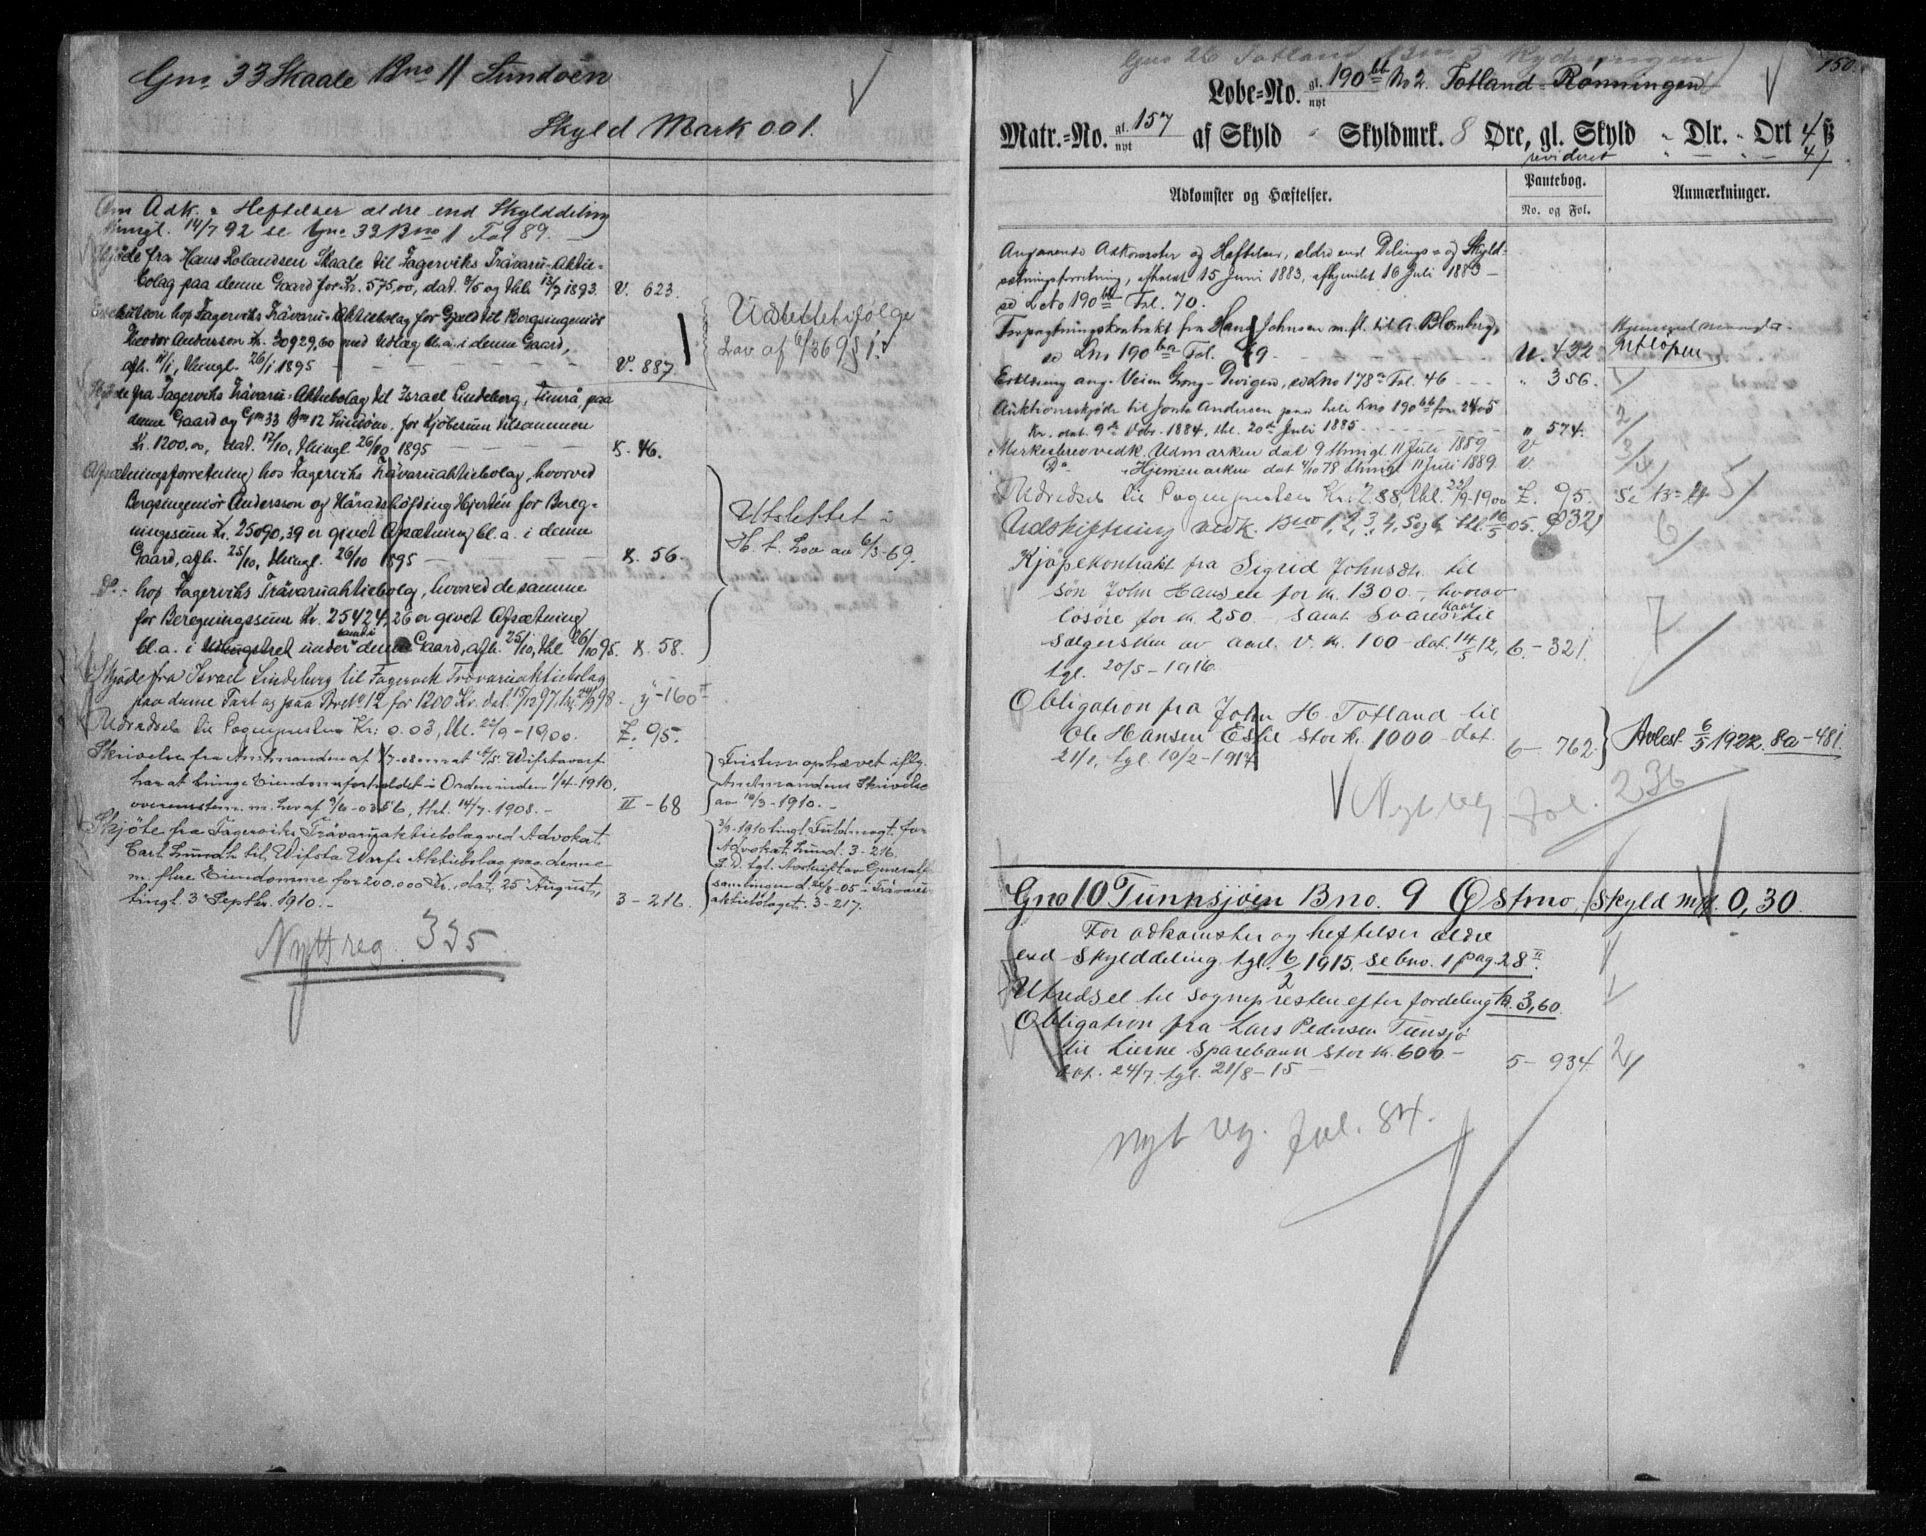 Gno 33 Skaale Bno 11 Sundøen
Skyld Mark 0.01.
Om Adk. & Heftelser ældre end Skylddeling
thingl. 14/7 92 se Gno 33 Bno 1 Fol 89.
Skjøde fra Hans Rolandsen Skaale til Fagerviks Trävaru-Aktie-
bolag paa denne Gaard for Kr. 575,00, dat. 9/5 og thl. 13/7 1893. V. 623.
Execution hos Fagerviks Trävaru-Aktiebolag for Gjæld til Bergsingeniör
Theodor Andersson Kr. 30929,60 med Udlæg bl. a. i denne Gaard,
afh. 11/1, thingl. 26/1 1895 V. 887.
Udslettet ifølge
Lov af 6/3 69 § 1.
Skjøde fra Fagerviks Trävaru-Aktiebolag til Israel Lindeborg, Timrå, paa
denne Gaard og Gno 33 Bno 12 Sundøen, for Kjøbesum tilsammen
Kr. 1200,00, dat. 12/10, thingl 26/10 1895 X. 46.
Afsætningsforretning hos Fagerviks Trävaruaktiebolag, hvorved
Bergsingeniör Andersson og Häradshöfding Hjertén for Bereg-
ningssum Kr. 25090,39 er givet Afsætning bl. a. i denne
Gaard, afh. 25/10, thingl. 26/10 1895 X. 56.
Utslettet i
H. t. Lov av 6/3-69.
Do. hos Fagerviks Trävaruaktiebolag, hvorved de samme
for Beregningssum Kr. 25424,26 er givet Afsætning
bl. a. i denne Gaard, afh. 25/10, thl 26/10 95. X. 58.
Skjøde fra Israel Lindeberg til Fagervik Trävaruaktiebolag
paa denne Part og paa Bno 12 for 1200 Kr. dat. 15/12 97, 98. y - 160
Udredsel til Sognepresten Kr: 0.03, thl. 22/9-1900. Z. 95.
Skrivelse fra Amtmanden af at Wifstavarf
har at bringe Eiendomsforholdet i Orden inden 1/4-1910,
overensstem. m. Lov af, thl. 14/7-1908. II - 68
Fristen ophævet iflg.
Amtmandens Skrivelse
av 10/3-1910.
Skjøte fra Fagerviks Trävaruaktiebolag ved Advokat
Carl Lundh til Wifsta Warfs Aktiebolag paa denne
m. flere Eiendomme for 200.000 Kr., dat. 25 August,
tingl. 3 Septbr. 1910. 3 - 216
3/9-1910 tingl. Fuldmagt for
Advokat Lund. 3-216.
S. D. tgl. Avskrift av General-
samlingen d. i Trävaru-
aktiebolaget. 3-217.
Nytt reg. 335
150.
Gno 26 Totland Bno 5 Rydningen
Løbe-No. gl. nyt 190 bb No 2. Totland-Rønningen
Matr.-No. gl. nyt 157 af Skyld " Skyldmrk. 8 Øre, gl. Skyld " Dlr. " Ort 4 ß
revideret " - " - 4/
Adkomster og Hæftelser.
Pantebog.
No. og Fol.
Anmærkninger.
Angaaende Adkomster og Heftelser, ældre end Delings- og Skyld-
sætningsforretning, afholdt 15 Juni 1883, thinglyst 16 Juli 1883 -
se L No 190 Fol. 70.
Forpagtningskontrakt fra Hans Johnsen m. fl. til A. Blomberg,
se Lno 190 Fol. 69. U. 432
Erklæring ang. Veien Grong-Devigen, se Lno 178 a Fol. 46 " 356. 1/
Auktionsskjøde til Jonte Andersen paa hele Lno 190 bb for 2405
Kr. dat. 9de Debr. 1884, thl. 20de Juli 1885. " 574. 2/
Merkebrev vedk. Udmarken dat 9 thingl. 11 Juli 1889 V 3/
Do. Hjemmarken dat 1/10 78 thingl 11 Juli 1889. V. 4/
Udredsel til Sognepresten Kr: 2.88, thl. 22/9-1900 Z. 95. Se 5/
Udskiftning vedk. Bno 1, 2, 3, 4, 5 og 6 thl. 16/5 05. 6/
Kjøpekontrakt fra Sigrid Johnsdtr. til
søn John Hansen for kr. 1300, hvorav
løsøre for kr. 250 samt Svare kaar til
sælgersken av aarl. v. kr. 100 - dat. 14/5 12,
tgl. 20/5-1916. 6 - 321. 7/
Obligation fra John H Totland til
Ole Hansen Estil stor kr. 1000 dat.
21/1, tgl. 10/2-1917 6 - 762. Avlest 6/5 1922. 8a-481.
Nyt reg fol. 236
Gno 10 Tunnsjøen Bno. 9 Østmo, Skyld mk. 0,30.
For adkomster og heftelser ældre
end skylddeling tgl. 6/2 1915. se bno. 1 pag. 28 II.
Utredsel til sognepresten efter fordeling kr. 3,60. 1/
Obligation fra Lars Pedersen Tunsjø
til Lierne Sparebank stor kr. 600 -
dat. 24/7. tgl. 21/8-15 5 - 934 2/
Nyt reg. fol. 84.